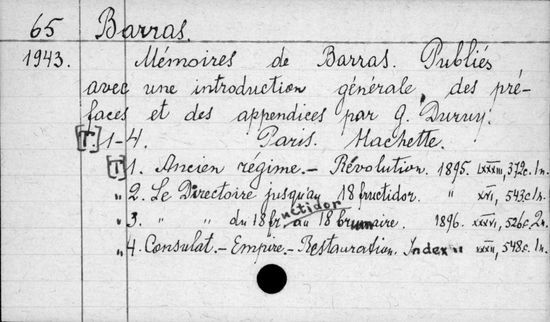 65 Barras.
1943. Mémoires de Barras. Publiés
avec une introduction générale, des pré-
faces et des appendices par G. Duruy.
[T.] 1-4. Paris. Hachette.
[T] 1. Ancien régime. - Révolution. 1895. LXXXIII, 372c. 1n.
" 2. Le Directoire jusqu'au 18 fructidor. " XVI, 543c 1n
" 3. " " du 18 fructidor au 18 brumaire. 1896. XXXVI, 526c. 2n.
" 4. Consulat. - Empire. - Restauration. Index " XXXII, 548c. 1n.